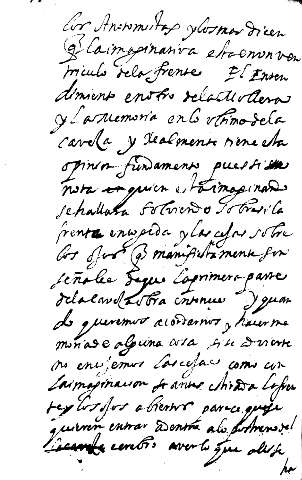 los Anotomistas y los mas dicen
q̃ la imaginativa esta en un ven
triculo de la frente El Enten
dimiento en otro de la Mollera
y la Memoria en lo ultimo de la
caveza y Realmente tiene esta
opinion fundamento pues si se
nota en quien esta imaginando
se hallara bolviendo sobre si la
frente encojida y las cejas sobre
los ojos q̃ manifiestamente son
señales de que la primera parte
de la caveza obra entonces y quan
do queremos acordarnos y hacer me
moria de alguna cosa si se advierte
no encojemos las cejas como en
la imaginacion antes estirada la fren
te y los ojos abiertos parece que se
quieren entrar adentro a lo postrero del
cerebro a ver lo que alli se
ha